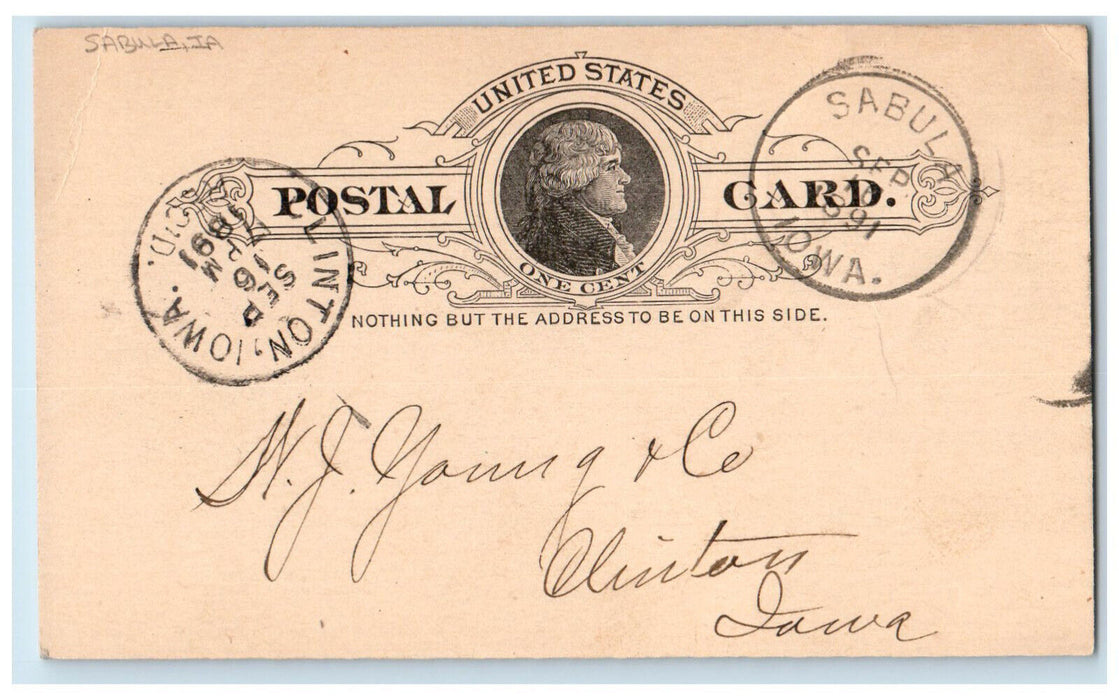 SABULA, IA
UNITED STATES
POSTAL CARD.
ONE CENT
NOTHING BUT THE ADDRESS TO BE ON THIS SIDE.
SABULA
SEP
1891
IOWA.
CLINTON, IOWA.
SEP
16
7 PM
1891
REC'D.
W. J. Young & Co
Clinton
Iowa